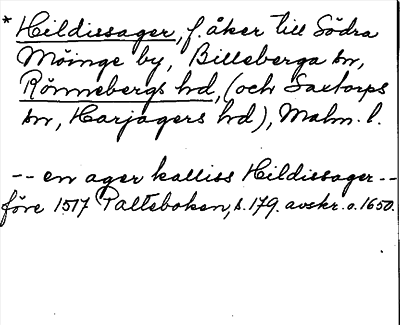 * Hildissager, f. åker till Södra
Möinge by, Billeberga sn,
Rönnebergs hd, (och Saxtorps
sn, Harjagers hd), Malm. l.
-- en ager kalliss Hildissager --
före 1517 Palteboken, s. 179. avskr. o. 1650.